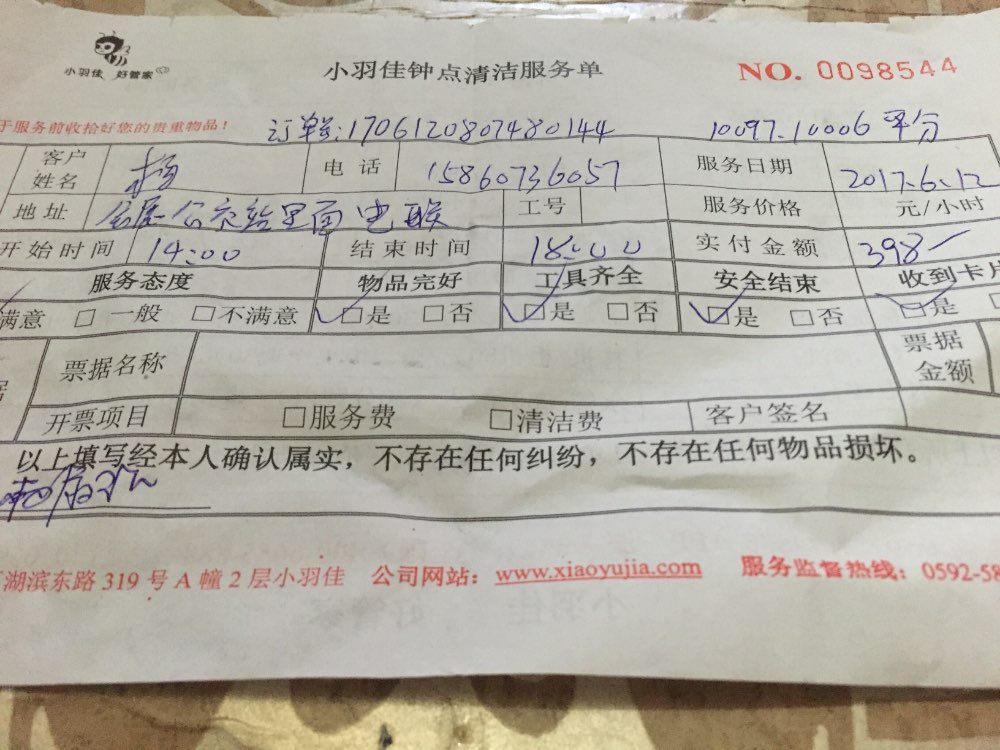 小羽佳 好管家
小羽佳钟点清洁服务单
NO. 0098544
于服务前收拾好您的贵重物品!
订单号:1706120807480144
10097.10006 平分
客户姓名 杨 电话 15860736057 服务日期 2017.6.12
地址 会展公交站里面电联 工号 服务价格 元/小时
开始时间 14:00 结束时间 18:00 实付金额 398
服务态度 物品完好 工具齐全 安全结束 收到卡片
满意 □一般 □不满意 □是 □否 □是 □否 □是 □否 □是
据 票据名称 票据金额
开票项目 □服务费 □清洁费 客户签名
以上填写经本人确认属实，不存在任何纠纷，不存在任何物品损坏。
湖滨东路 319 号 A 幢 2 层小羽佳 公司网站：www.xiaoyujia.com 服务监督热线：0592-58